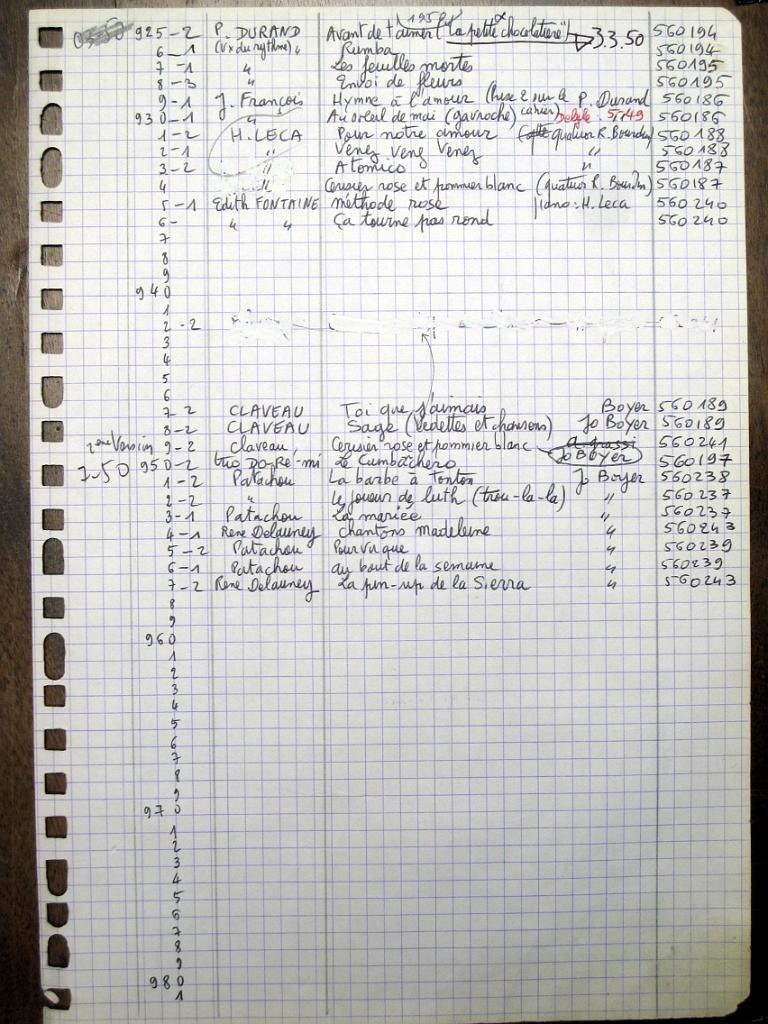 03-50 925-2 P. DURAND Avant de t'aimer (1950) "La petite chocolatière" → 3.3.50 560194
6-1 (Vx du rythme) " Rumba 560194
7-1 " Les feuilles mortes 560195
8-3 " Envoi de fleurs 560195
9-1 J. François Hymne à l'amour (Prise 2 sur le P. Durand 560186
930-1 " Au soleil de mai (gavroche) cahier) Delyle. 5749 560186
1-2 H. LECA Pour notre amour (quatuor R. Bourdin) 560188
2-1 " Venez Venez Venez " 560188
3-2 " Atomico " 560187
4 " Cerisier rose et pommier blanc (quatuor R. Bourdin) 560187
5-1 Edith FONTAINE méthode rose piano: H. Leca 560240
6- " " Ça tourne pas rond 560240
7
8
9
940
1
2-2
3
4
5
6
7-2 CLAVEAU Toi que j'aimais Boyer 560189
8-2 CLAVEAU Sage (Vedettes et chansons) Jo Boyer 560189
2ème Version 9-2 Claveau, Cerisier rose et pommier blanc Jo BOYER 560241
7-50 950-2 trio DO-RE-MI Le Cumbachero 560197
1-2 Patachou La barbe à Tonton Jo Boyer 560238
2-2 " Le joueur de luth (trou-la-la) " 560237
3-1 Patachou La mariée " 560237
4-1 Rene Delauney chantons madeleine " 560243
5-2 Patachou Pourvu que " 560239
6-1 Patachou au bout de la semaine " 560239
7-2 Rene Delauney La pin-up de la Sierra " 560243
8
9
960
1
2
3
4
5
6
7
8
9
970
1
2
3
4
5
6
7
8
9
980
1